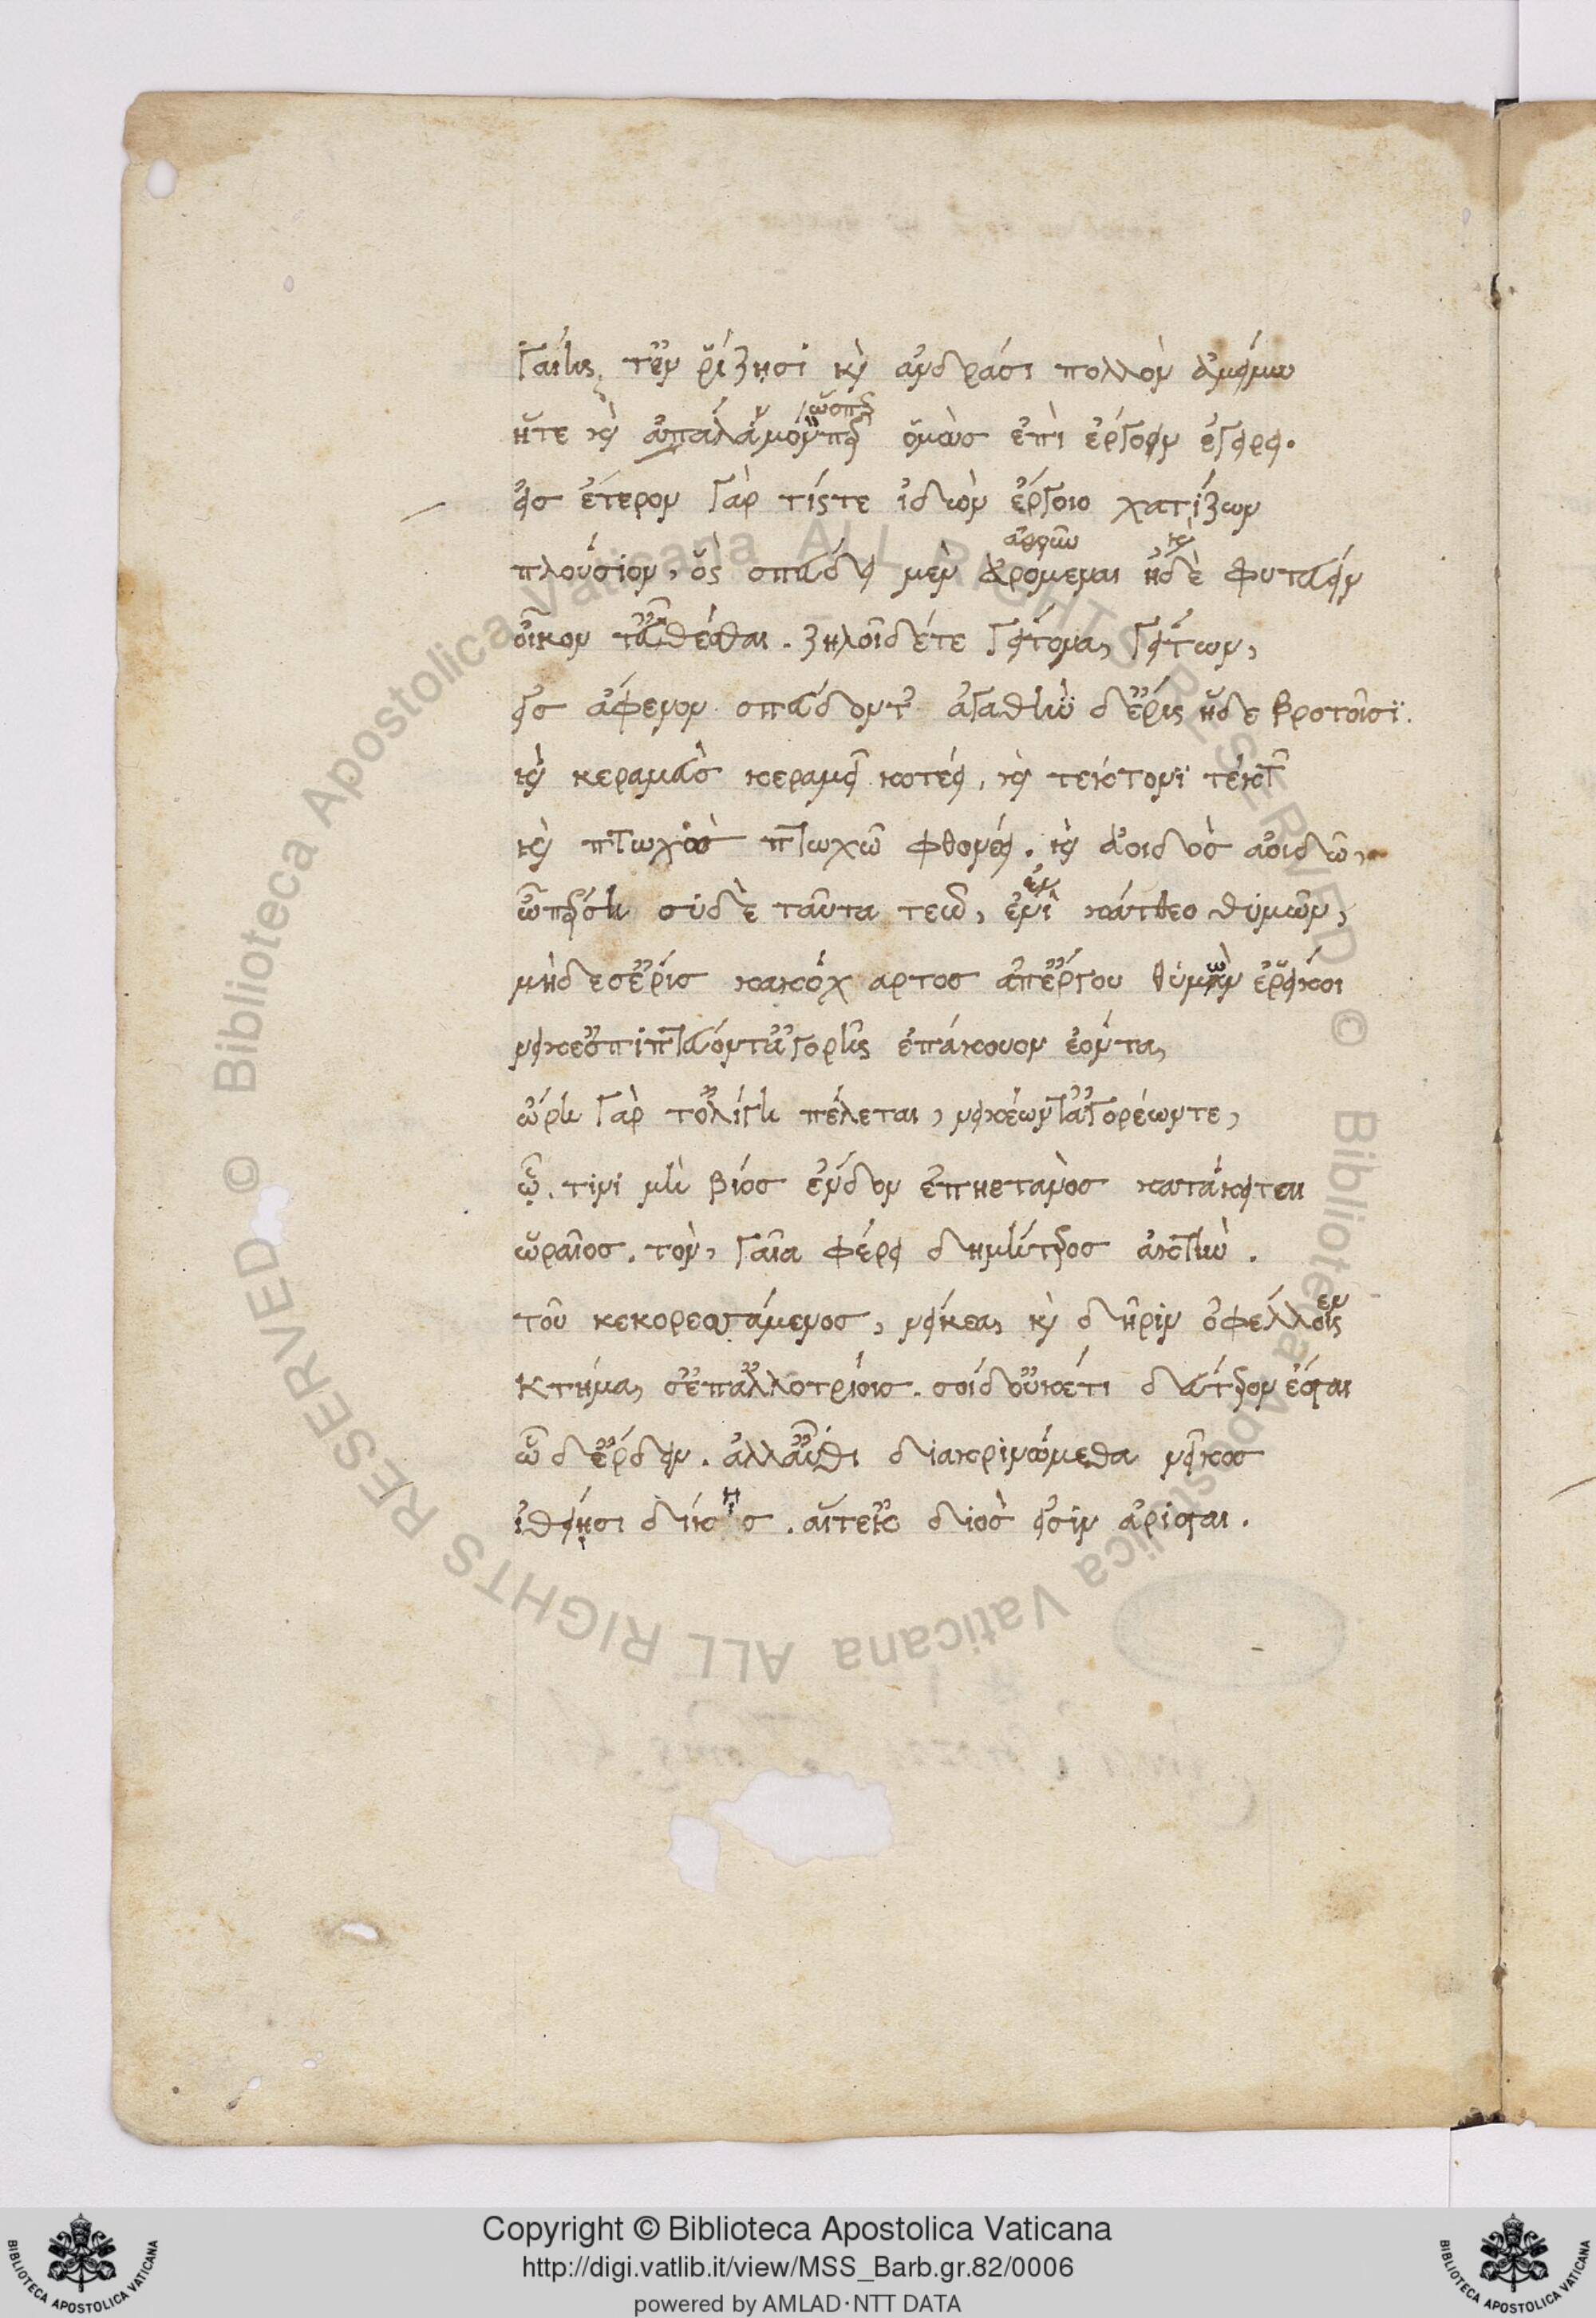 γαίης τ' ἐν ῥίζησι καὶ ἀνδράσι πολλὸν ἀμείνω
ἥτε καὶ ἀπάλαμόν περ ὅμως ἐπὶ ἔργον ἐγείρει.
εἰς ἕτερον γάρ τίς τε ἰδὼν ἔργοιο χατίζων
πλούσιον, ὃς σπεύδει μὲν ἀρόμεναι ἠδὲ φυτεύειν
οἶκον τ' εὖ θέσθαι. ζηλοῖ δέ τε γείτονα γείτων,
εἰς ἄφενον σπεύδοντ' ἀγαθὴ δ' ἔρις ἥδε βροτοῖσι.
καὶ κεραμεὺς κεραμεῖ κοτέει, καὶ τέκτονι τέκτων
καὶ πτωχὸς πτωχῶ φθονέει. καὶ ἀοιδὸς ἀοιδῶ,
ὦ πέρση σὺ δὲ ταῦτα τεῶ, ἐνὶ κάτθεο θυμῶ,
μηδέ σ' ἔρις κακόχαρτος ἀπ' ἔργου θυμὸν ἐρύκοι
νείκε' ὀπιπτεύοντ' ἀγορῆς ἐπάκουον ἐόντα,
ὥρη γάρ τ' ὀλίγη πέλεται, νεικέων τ' ἀγορέων τε,
ὧ τινι μὴ βίος ἔνδον ἐπηετανὸς κατάκειται
ὡραῖος. τὸν, γαῖα φέρει δημήτερος ἀκτὴν.
τοῦ κεκορεσσάμενος, νείκεα καὶ δῆριν ὀφέλλοις
κτήμασ' ἐπ' ἀλλοτρίοις. σοὶ δ' οὐκέτι δεύτερον ἔσται
ὧδ' ἔρδειν. ἀλλ' αὖθι διακρινώμεθα νεῖκος
ἰθείησι δίκης. αἵ τ' ἐκ διὸς εἰσιν ἄρισται.
Copyright © Biblioteca Apostolica Vaticana
http://digi.vatlib.it/view/MSS_Barb.gr.82/0006
powered by AMLAD·NTT DATA
BIBLIOTECA APOSTOLICA VATICANA
BIBLIOTECA APOSTOLICA VATICANA
© Biblioteca Apostolica Vaticana ALL RIGHTS RESERVED
© Biblioteca Apostolica Vaticana ALL RIGHTS RESERVED